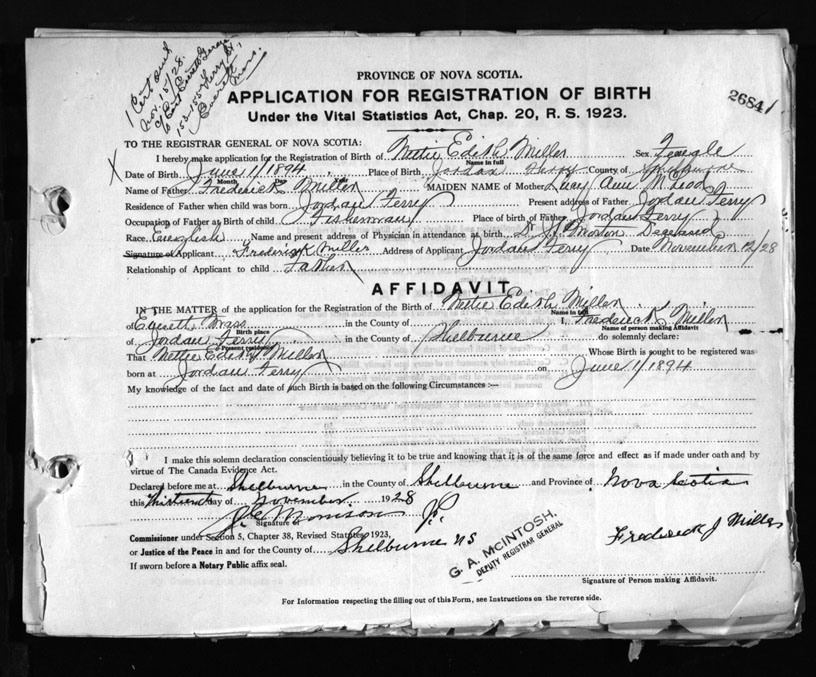 1 Cert and
Nov. 15/28.
153-155 Ferry St,
Everett
Mass.
PROVINCE OF NOVA SCOTIA.
APPLICATION FOR REGISTRATION OF BIRTH
Under the Vital Statistics Act, Chap. 20, R. S. 1923.
26841
TO THE REGISTRAR GENERAL OF NOVA SCOTIA:
I hereby make application for the Registration of Birth of Nettie Edith Miller Sex Female
Name in full
X Date of Birth June 1/1894 Place of Birth Jordan Ferry County of Shelburne
Month Day Year
Name of Father Frederick Miller MAIDEN NAME of Mother Lucy Ann McLeod
Residence of Father when child was born Jordan Ferry Present address of Father Jordan Ferry
Occupation of Father at Birth of child Fisherman Place of birth of Father Jordan Ferry
Race English Name and present address of Physician in attendance at birth Dr Morton Deceased
Signature of Applicant Frederick Miller Address of Applicant Jordan Ferry Date November 12/28
Relationship of Applicant to child Father
AFFIDAVIT.
IN THE MATTER of the application for the Registration of the Birth of Nettie Edith Miller
Name in full
Everett Mass in the County of I, Frederick Miller
Birth place Name of Person making Affidavit
of Jordan Ferry in the County of Shelburne do solemnly declare:
Present residence
That Nettie Edith Miller Whose Birth is sought to be registered was
born at Jordan Ferry on June 1/1894
My knowledge of the fact and date of such Birth is based on the following Circumstances :—
I make this solemn declaration conscientiously believing it to be true and knowing that it is of the same force and effect as if made under oath and by
virtue of The Canada Evidence Act.
Declared before me at Shelburne in the County of Shelburne and Province of Nova Scotia
this Thirteenth day of November 1928
J. C. Morrison J.P.
Signature of
Commissioner under Section 5, Chapter 38, Revised Statutes 1923,
or Justice of the Peace in and for the County of Shelburne NS
If sworn before a Notary Public affix seal.
G. A. McINTOSH,
DEPUTY REGISTRAR GENERAL
Frederick J Miller
Signature of Person making Affidavit.
For Information respecting the filling out of this Form, see Instructions on the reverse side.